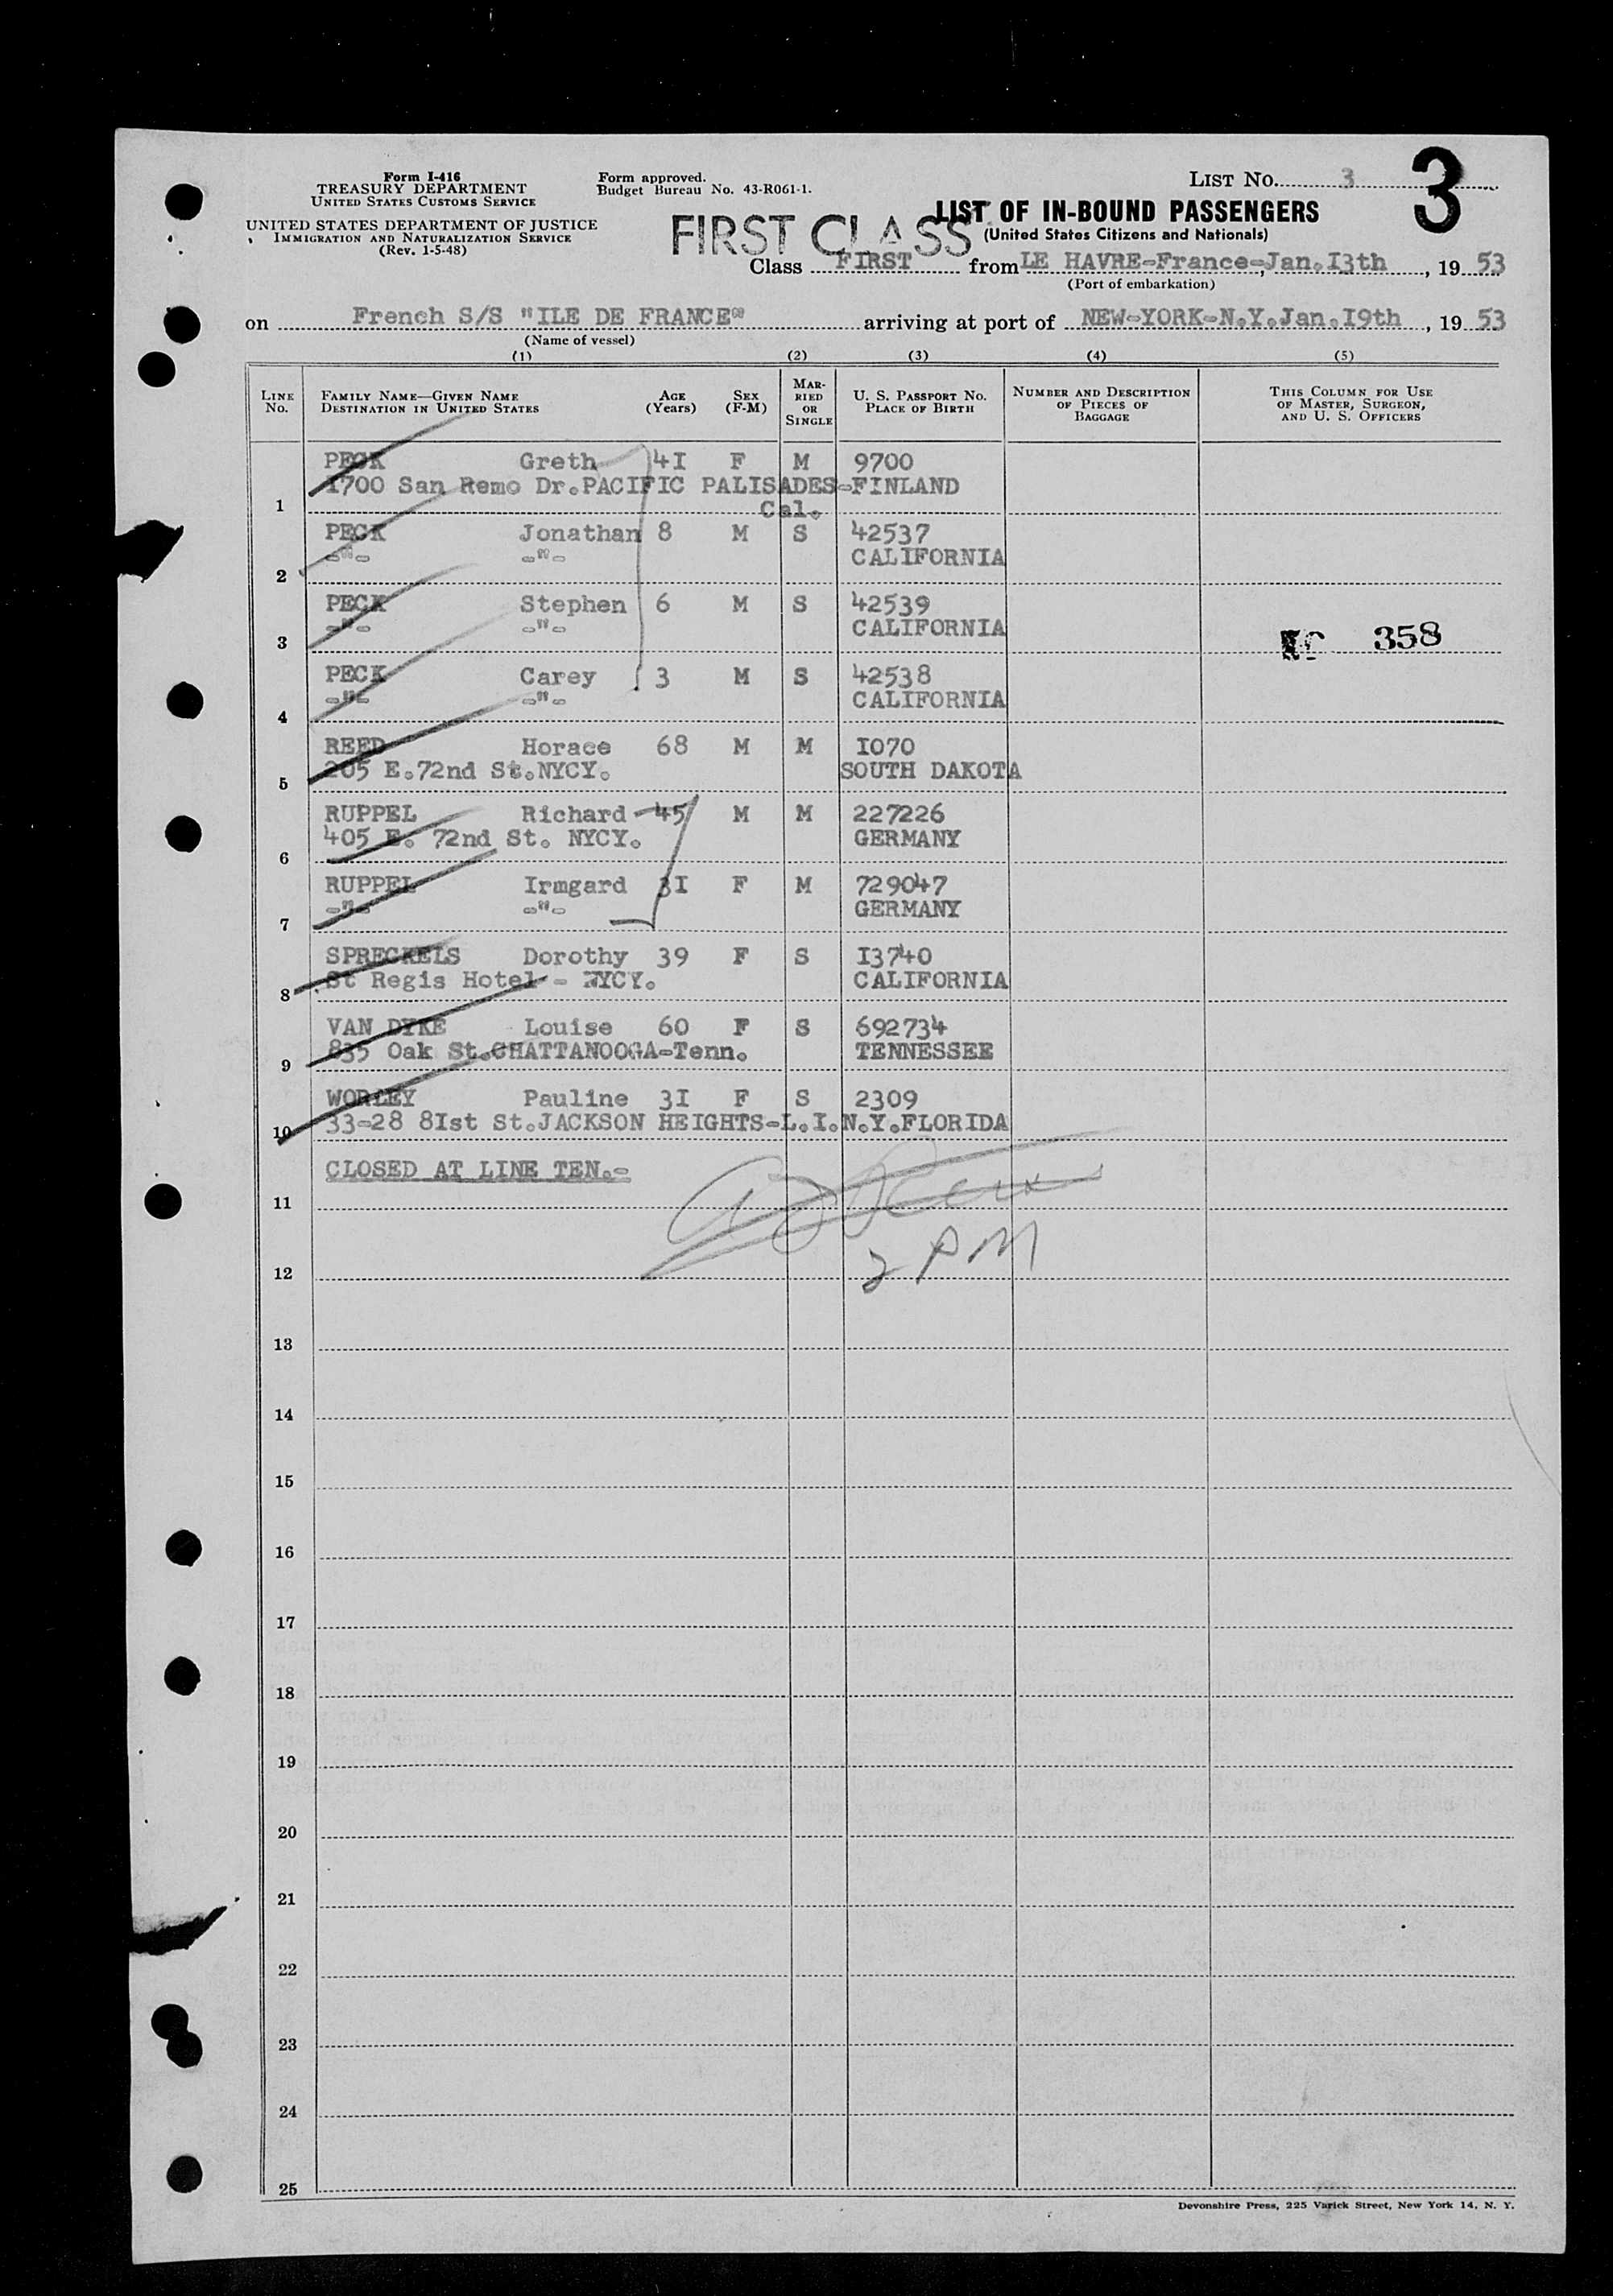 Form I-416
TREASURY DEPARTMENT
UNITED STATES CUSTOMS SERVICE
UNITED STATES DEPARTMENT OF JUSTICE
IMMIGRATION AND NATURALIZATION SERVICE
(Rev. 1-5-48)
Form approved.
Budget Bureau No. 43-R061-1.
LIST No. 3
3
FIRST CLASS
LIST OF IN-BOUND PASSENGERS
(United States Citizens and Nationals)
Class FIRST from LE HAVRE-France-Jan.I3th, 19 53
(Port of embarkation)
on French S/S "ILE DE FRANCE" arriving at port of NEW-YORK-N.Y.Jan.I9th, 19 53
(Name of vessel)
(1) (2) (3) (4) (5)
LINE No. FAMILY NAME—GIVEN NAME DESTINATION IN UNITED STATES AGE (Years) SEX (F-M) MARRIED OR SINGLE U. S. PASSPORT No. PLACE OF BIRTH NUMBER AND DESCRIPTION OF PIECES OF BAGGAGE THIS COLUMN FOR USE OF MASTER, SURGEON, AND U. S. OFFICERS
PECK Greth 4I F M 9700
1700 San Remo Dr.PACIFIC PALISADES-FINLAND
1 Cal.
PECK Jonathan 8 M S 42537
-"- -"- CALIFORNIA
2
PECK Stephen 6 M S 42539
-"- -"- CALIFORNIA
3 358
PECK Carey 3 M S 42538
-"- -"- CALIFORNIA
4
REED Horace 68 M M I070
205 E.72nd St.NYCY. SOUTH DAKOTA
5
RUPPEL Richard 45 M M 227226
405 E. 72nd St. NYCY. GERMANY
6
RUPPEL Irmgard 3I F M 729047
-"- -"- GERMANY
7
SPRECKELS Dorothy 39 F S I3740
St Regis Hotel - NYCY. CALIFORNIA
8
VAN DYKE Louise 60 F S 692734
835 Oak St.CHATTANOOGA-Tenn. TENNESSEE
9
WORLEY Pauline 3I F S 2309
33-28 8Ist St.JACKSON HEIGHTS-L.I.N.Y.FLORIDA
10
CLOSED AT LINE TEN.-
11
2 PM
12
13
14
15
16
17
18
19
20
21
22
23
24
25
Devonshire Press, 225 Varick Street, New York 14, N. Y.